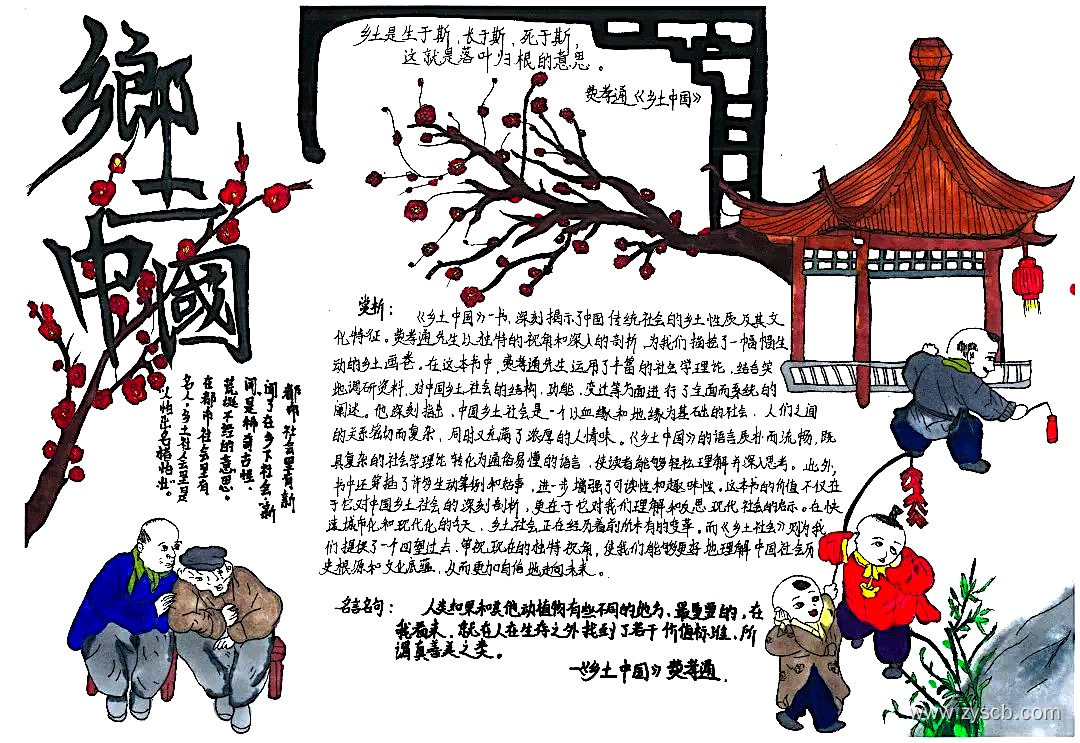 鄉土
中國
乡土是生于斯，长于斯，死于斯，
这就是落叶归根的意思。
费孝通《乡土中国》
都市社会里有新
闻；在乡下社会，新
闻是稀奇古怪，
荒诞不经的意思。
在都市社会里有
名人，乡土社会里是
人怕出名猪怕壮。
赏析： 《乡土中国》一书，深刻揭示了中国传统社会的乡土性质及其文
化特征。费孝通先生以独特的视角和深入的剖析，为我们描绘了一幅幅生
动的乡土画卷。在这本书中，费孝通先生运用了丰富的社会学理论，结合实
地调研资料，对中国乡土社会的结构、功能、变迁等方面进行了全面而系统的
阐述。他深刻指出，中国乡土社会是一个以血缘和地缘为基础的社会，人们之间
的关系密切而复杂，同时又充满了浓厚的人情味。《乡土中国》的语言质朴而流畅，既
具复杂的社会学理论转化为通俗易懂的语言，使读者能够轻松理解并深入思考。此外，
书中还穿插了许多生动案例和故事，进一步增强了可读性和趣味性。这本书的价值不仅在
于它对中国乡土社会的深刻剖析，更在于它对我们理解和反思现代社会的启示。在快
速城市化和现代化的今天，乡土社会正在经历着前所未有的变革。而《乡土社会》则为我
们提供了一个回望过去、审视现在的独特视角，使我们能够更好地理解中国社会历
史根源和文化底蕴，从而更加自信地走向未来。
名言名句： 人类如果和其他动植物有些不同的地方，最重要的，在
我看来，就在人在生存之外找到了若干价值标准，所
谓真善美之类。
—《乡土中国》费孝通.
www.zyscb.com